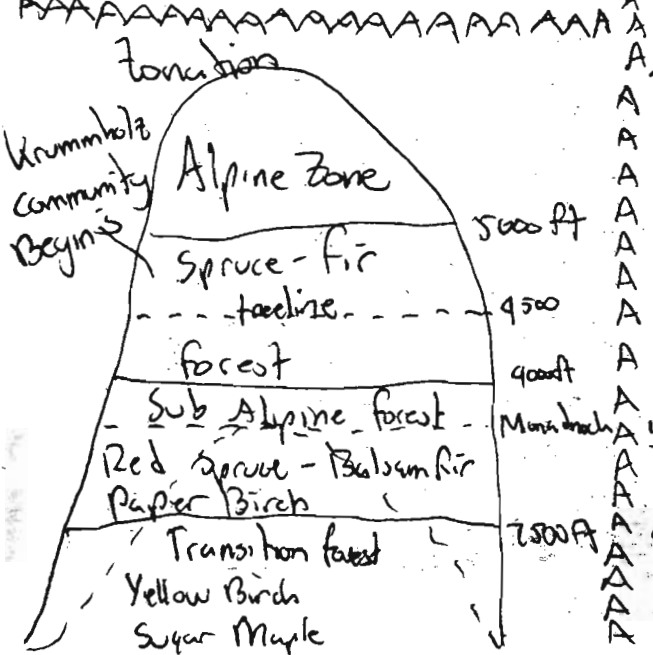 Zonation
Krummholz
Community
Begins
Alpine Zone
5000 ft
Spruce - fir
treeline
4500
forest
4000ft
Sub Alpine forest
Monadnock
Red Spruce - Balsam fir
Paper Birch
2500ft
Transition forest
Yellow Birch
Sugar Maple